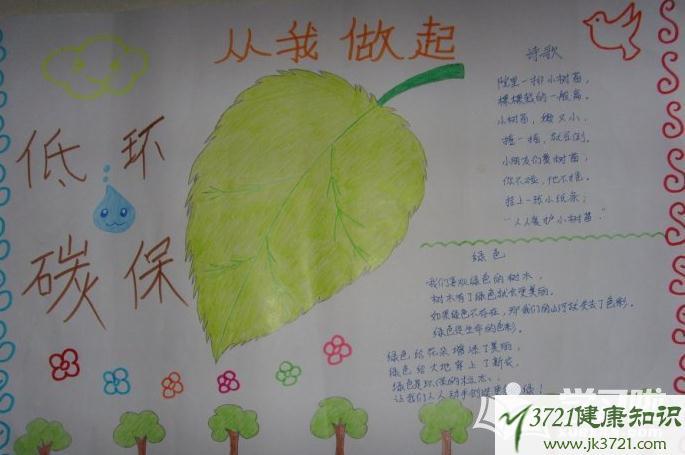 从我做起
低环
碳保
诗歌
院里一排小树苗，
棵棵我的一般高。
小树苗，嫩又小，
撞一撞，就会倒。
小朋友们爱树苗，
你不碰，他不摇。
挂上一张小纸条：
“人人爱护小树苗。”
绿色
我们喜欢绿色的树木，
树木有了绿色就会更美丽。
如果绿色不存在，那我们的山河就失去了色彩。
绿色是生命的色彩。
绿色给花朵增添了美丽，
绿色给大地穿上了新衣，
绿色是环保的标志，
让我们人人动手创
3721健康知识
www.jk3721.com